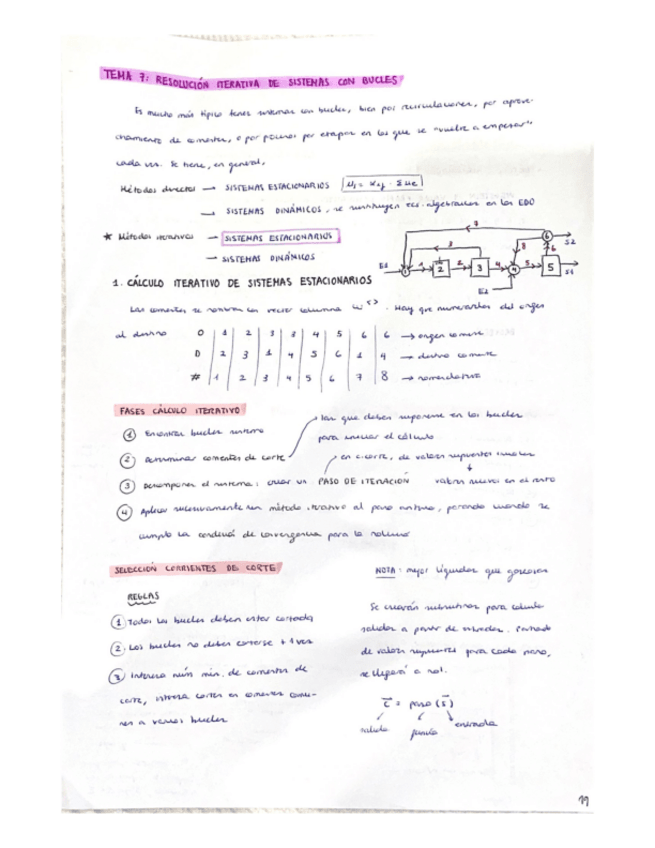 TEMA 7: RESOLUCIÓN ITERATIVA DE SISTEMAS CON BUCLES
Es mucho más típico tener sistemas con bucles, bien por recirculaciones, por aprove-
chamiento de corrientes, o por procesos por etapas en los que se "vuelve a empezar"
cada vez. Se tiene, en general,
Métodos directos → SISTEMAS ESTACIONARIOS
→ SISTEMAS DINÁMICOS, se sustituyen ecs. algebraicas en las EDO
★ Métodos iterativos → SISTEMAS ESTACIONARIOS
→ SISTEMAS DINÁMICOS
7
3
8
6
6
S2
E1
1
1
2
2
3
4
4
5
5
S1
E2
1. CÁLCULO ITERATIVO DE SISTEMAS ESTACIONARIOS
Las corrientes se nombran con vector columna . Hay que numerarlas del origen
al destino
O 1 2 3 3 4 5 6 6 → origen corriente
D 2 3 1 4 5 6 1 4 → destino corriente
# 1 2 3 4 5 6 7 8 → nomenclatura
FASES CÁLCULO ITERATIVO
① Encontrar bucles sistema
② Determinar corrientes de corte
las que deben suponerse en los bucles
para iniciar el cálculo
③ Descomponer el sistema: crear un PASO DE ITERACIÓN
en c.corte, de valores supuestos iniciales
valores nuevos en el resto
④ Aplicar sucesivamente un método iterativo al paso anterior, parando cuando se
cumpla la condición de convergencia para la solución
SELECCIÓN CORRIENTES DE CORTE
REGLAS
① Todos los bucles deben estar cortados
② Los bucles no deben cortarse +1 vez
③ Interesa núm. min. de corrientes de
corte, interesa cortar en corrientes comu-
nes a varios bucles
NOTA: mejor líquidas que gaseosas
Se crearán subrutinas para calcular
salidas a partir de entradas. Partiendo
de valores supuestos para cada paso,
se llegará a sol.
c = paso (s)
salida función entrada